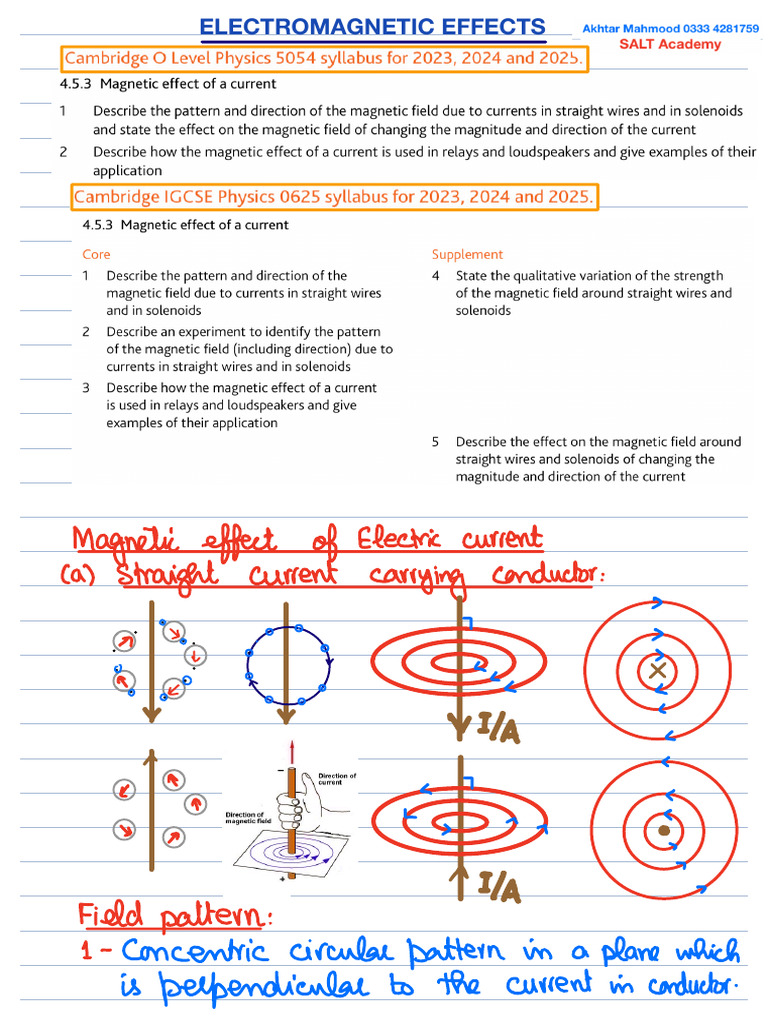 ELECTROMAGNETIC EFFECTS
Akhtar Mahmood 0333 4281759
SALT Academy
Cambridge O Level Physics 5054 syllabus for 2023, 2024 and 2025.
4.5.3 Magnetic effect of a current
1 Describe the pattern and direction of the magnetic field due to currents in straight wires and in solenoids
and state the effect on the magnetic field of changing the magnitude and direction of the current
2 Describe how the magnetic effect of a current is used in relays and loudspeakers and give examples of their
application
Cambridge IGCSE Physics 0625 syllabus for 2023, 2024 and 2025.
4.5.3 Magnetic effect of a current
Core
1 Describe the pattern and direction of the
magnetic field due to currents in straight wires
and in solenoids
2 Describe an experiment to identify the pattern
of the magnetic field (including direction) due to
currents in straight wires and in solenoids
3 Describe how the magnetic effect of a current
is used in relays and loudspeakers and give
examples of their application
Supplement
4 State the qualitative variation of the strength
of the magnetic field around straight wires and
solenoids
5 Describe the effect on the magnetic field around
straight wires and solenoids of changing the
magnitude and direction of the current
Magnetic effect of Electric current
(a) Straight current carrying conductor:
I/A
Direction of
current
Direction of
magnetic field
-
+
I/A
Field pattern:
1 - Concentric circular pattern in a plane which
is perpendicular to the current in conductor.